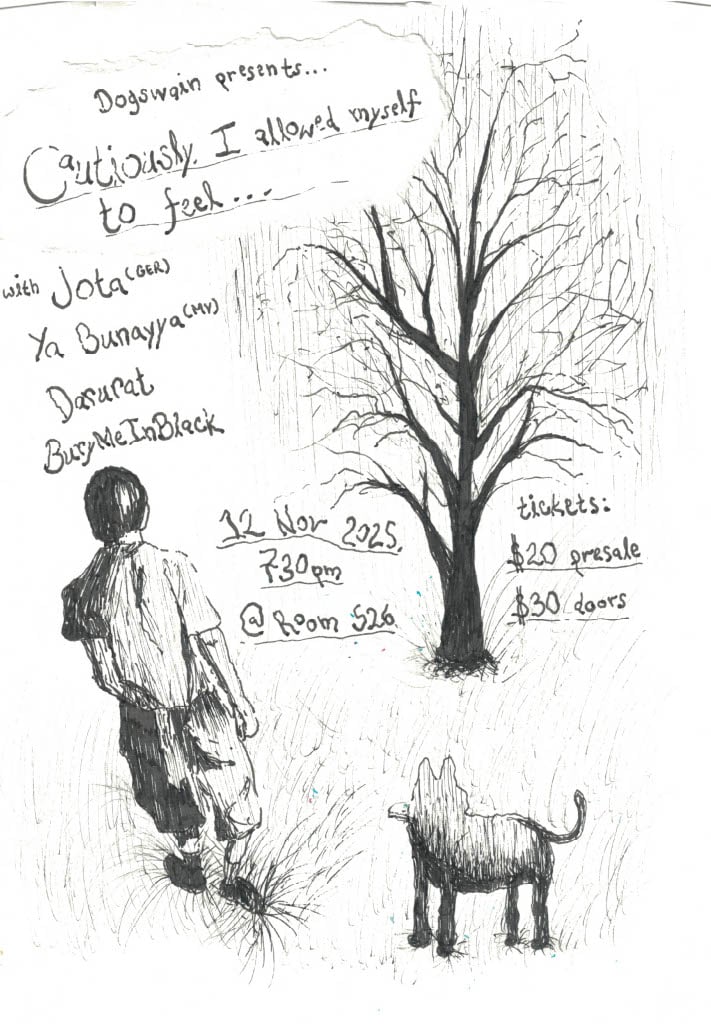 Dogswain presents...
Cautiously, I allowed myself
to feel...
with Jota (GER)
Ya Bunayya (MV)
Dasurat
BuryMeInBlack
12 Nov 2025.
730pm
@ Room 526
tickets:
$20 presale
$30 doors